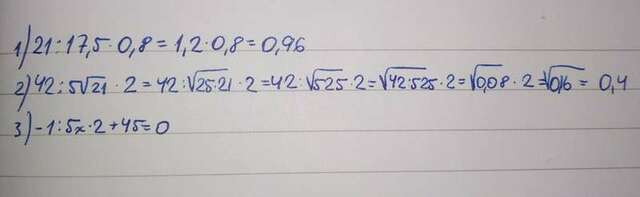 1) 21:17,5·0,8=1,2·0,8=0,96
2) 42:5√21·2=42:√25·21·2=42:√525·2=√42:525·2=√0,08·2=√0,16=0,4
3) -1:5x·2+45=0